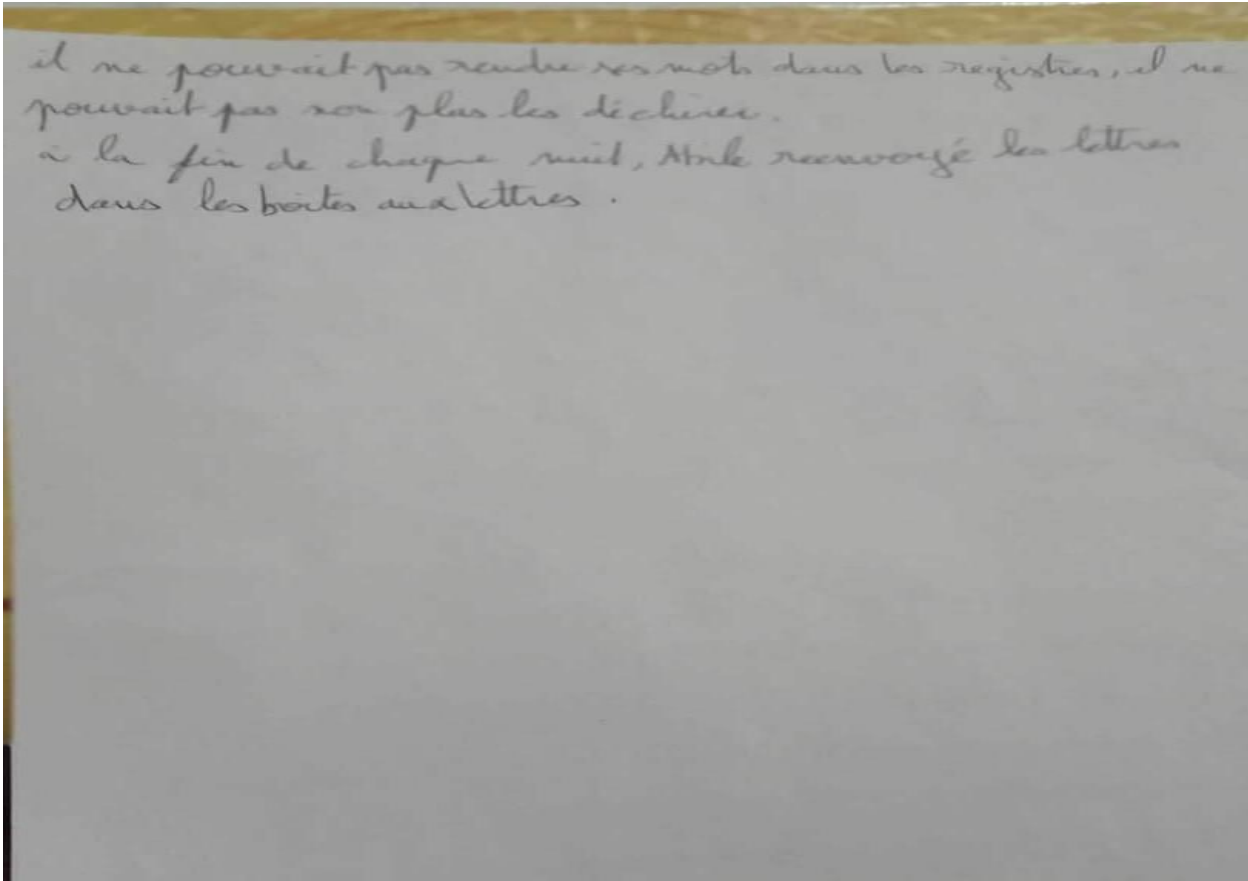 il ne pouvait pas rendre ses mots dans les registres, il ne
pouvait pas non plus les déchirer.
à la fin de chaque nuit, reenvoyé les lettres
dans les boîtes aux lettres.